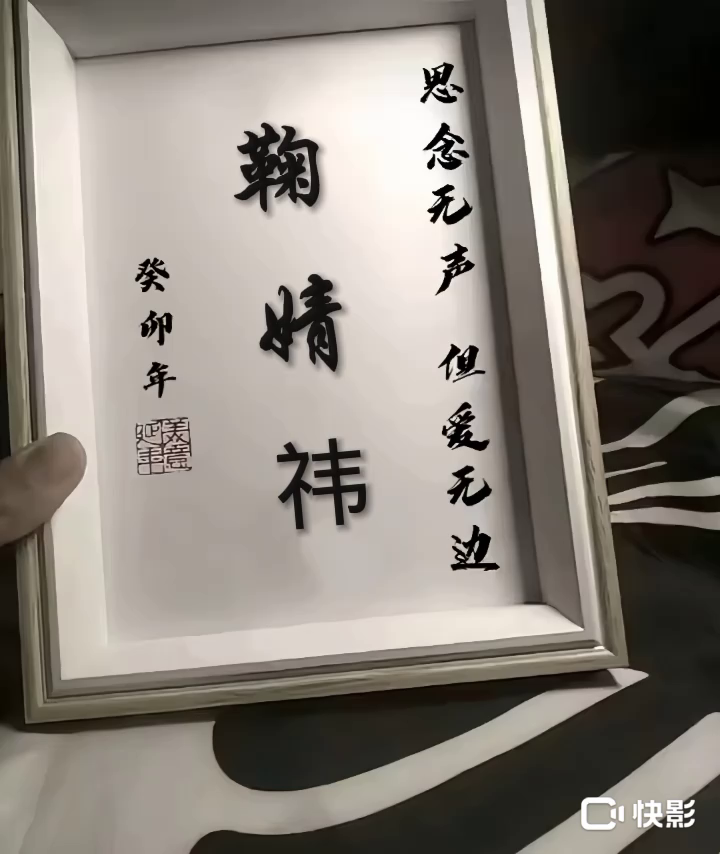 思念无声 但爱无边
鞠婧祎
癸卯年
美意
延年
快影